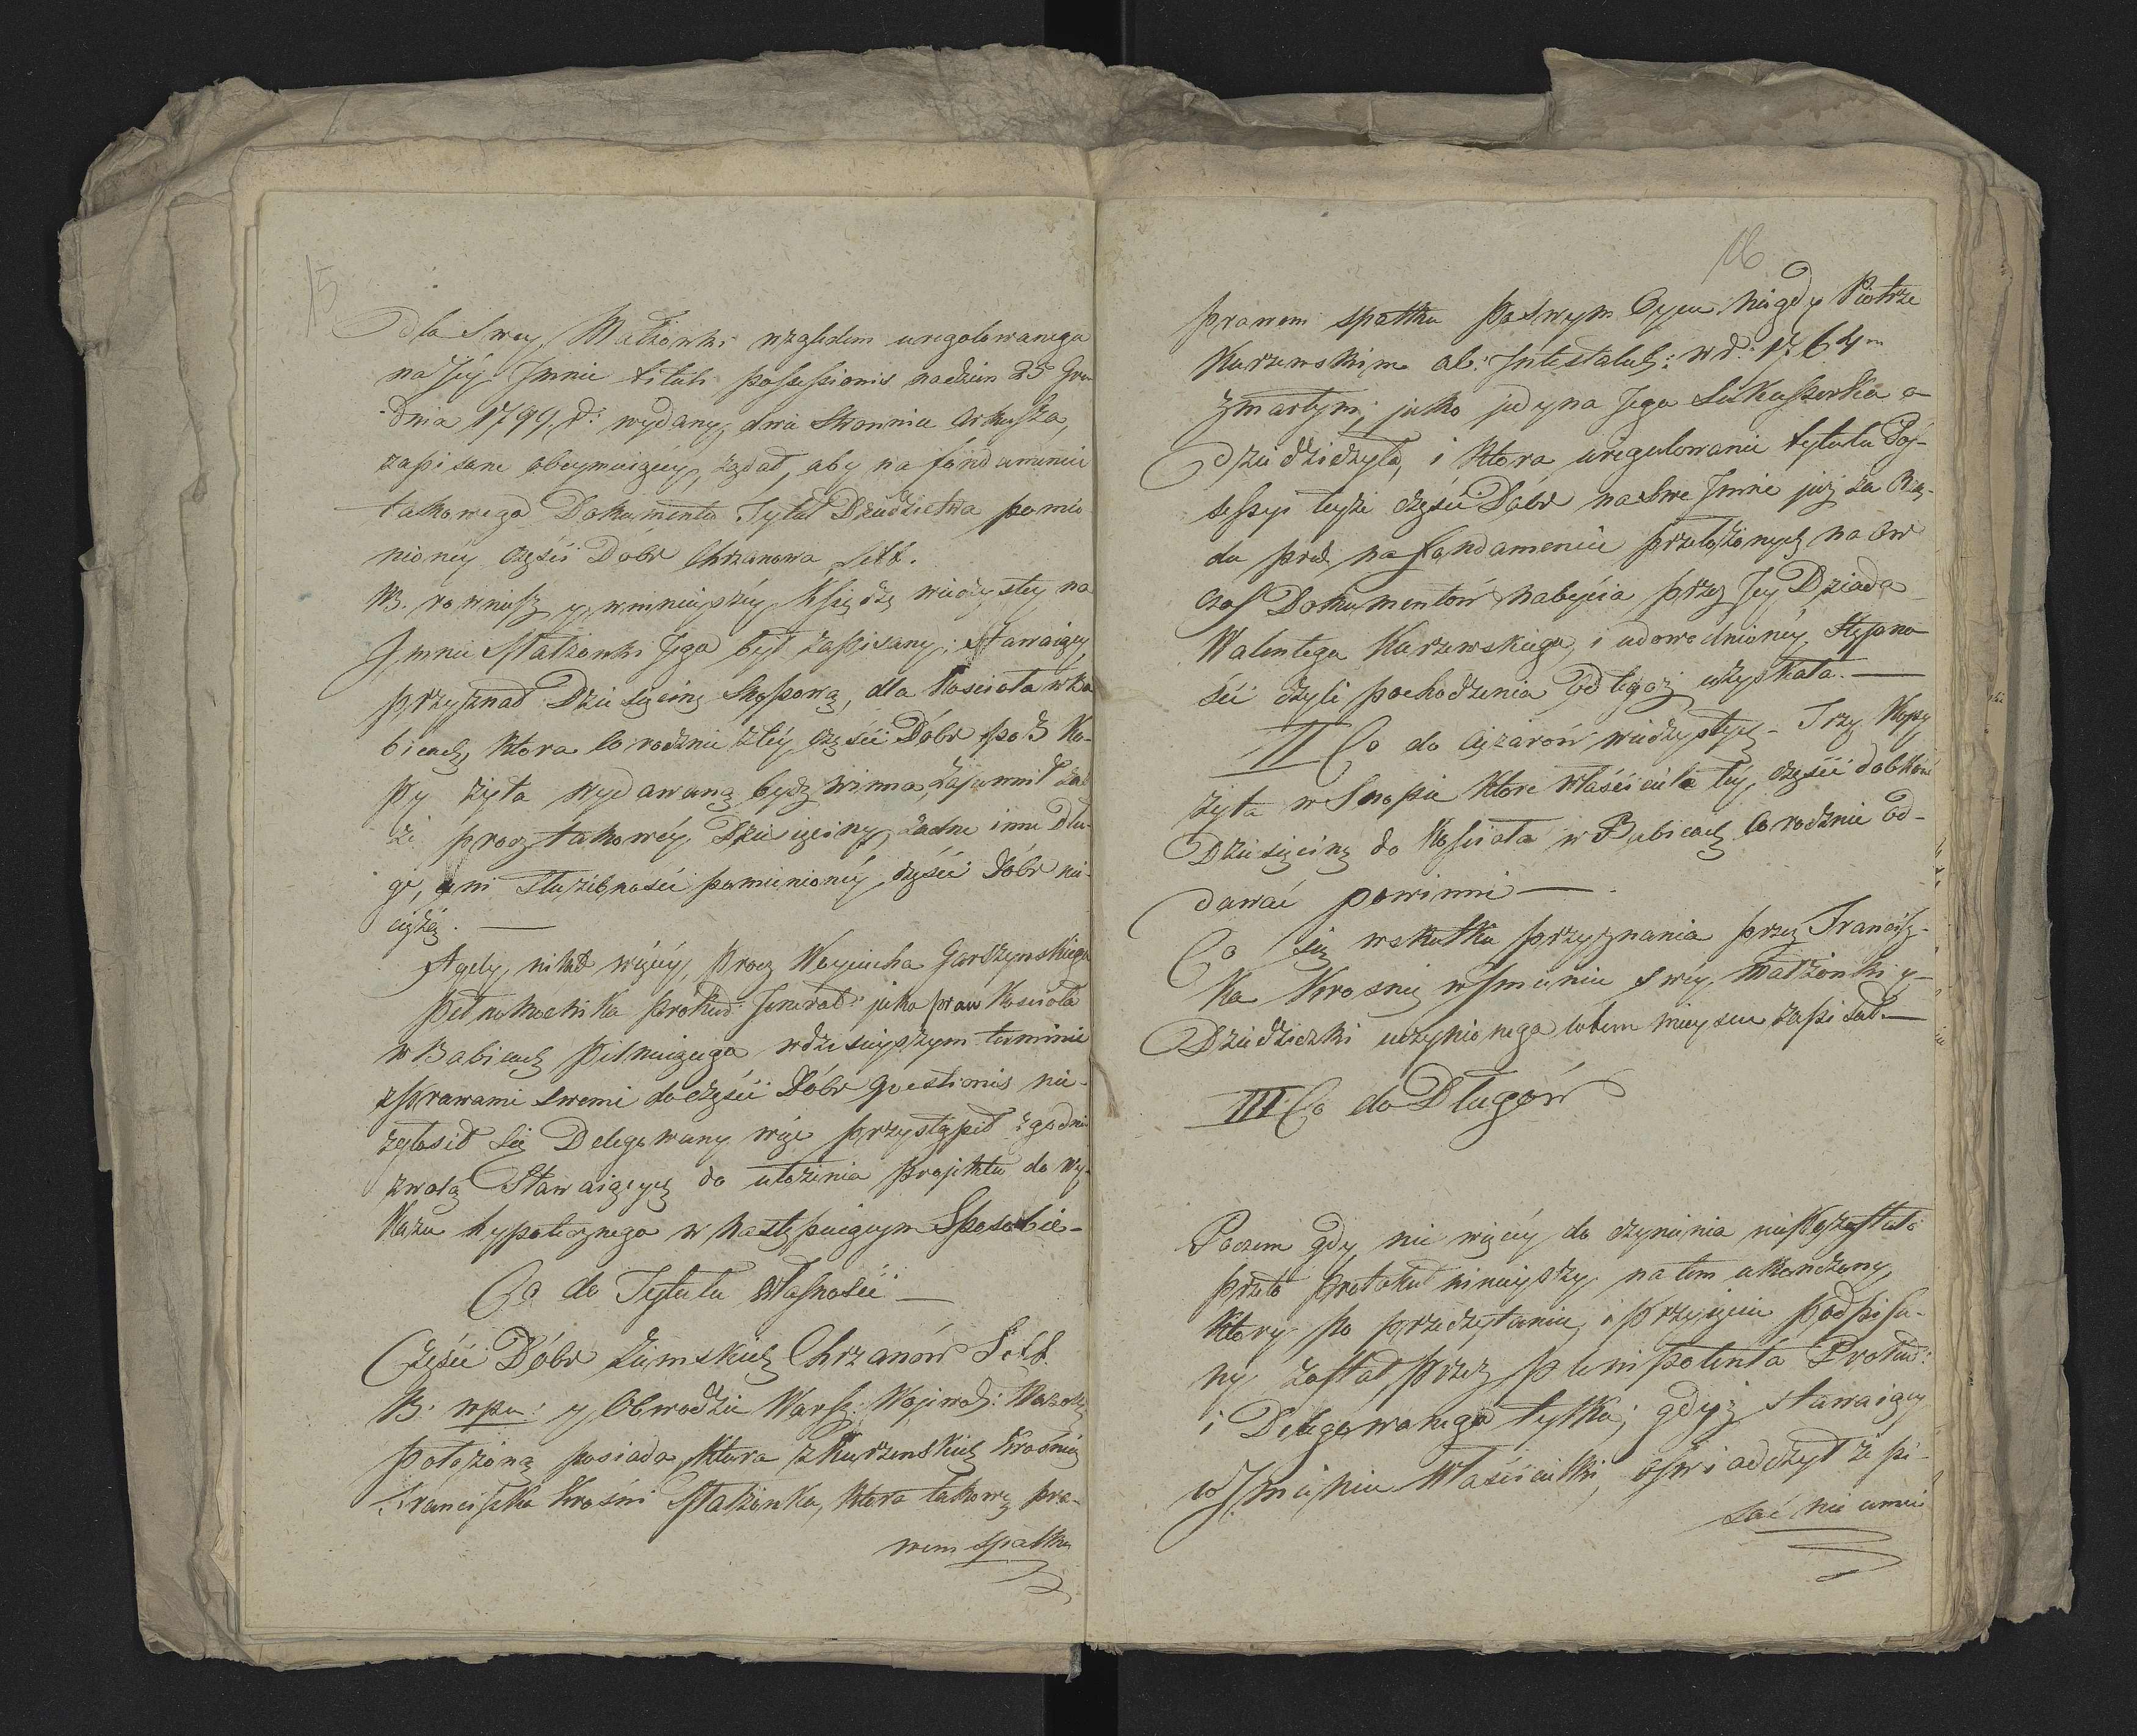 15
dla Swey Małżonki względem uregulowanego
na Jéy Jmnie tituli possessionis na dzień 25 Gru-
dnia 1799. r: wydany, dwa Stronnice Arkusza,
zapisane obeymuiący, żądał, aby na fundamencie
takowego Dokumentu Tytuł Dziedzictwa pomie
nioney części Dóbr Chrzanowa Litt.
B. rownież y w mnieyszéy Księdze wieczystey na
Jmnie Małżonki Jego był zapisany; Stawaiący,
przyznał Dziesięcinę Snopową, dla Kościoła w Ba
bicach, ktora Corocznie z téy części Dóbr po 3 Ko-
py żyta wydawaną bydź winna, zapewnił zaś
że procz takowéy Dziesięciny, żadne inne Dłu-
gi, ani Służebności pomienionéy części Dóbr nie
ciążą. —
A gdy, nikt więcéy, procz Woyciecha Garszynskiego
Pełnomocnika Prokur: Jenerał: jako praw Kościoła
w Babicach pilnuiącego w dzisieyszym terminie
z prawami swemi do części Dóbr questionis nie-
zgłosił się Delegowany więc przystąpił zgodnie
z wolą Stawaiących do ułożenia projektu do Wy-
kazu hypotecznego w następuiącym Sposobie –
Co do Tytułu Własności —
Części Dóbr Ziemskich Chrzanów Litt.
B. w pu: y Obwodzie Warsz: Wojewodz: Mazow:
położoną posiada Klara z Kurzewskich Krośnic
Franciszka Krośni Małżonka, ktora takową pra-
wem spadku
16
prawem spadku po swym Oycu niegdy Piotrze
Kurzewskim ab: Jntestatuts: w r: 1764m
zmarłym, jako jedyna Jego Sukcessorka o-
dziedziczyła, i ktora uregulowanie tytułu Pos-
sessyi teyże części Dóbr na swe Jmie już za Rzą-
du prus na fundamencie przełożonych na ów
czas Dokumentów nabycia przez Jey Dziada
Walentego Kurzewskiego, i udowodnionéy Stępno
ści czyli pochodzenia od tegoż uzyskała. —
II Co do Ciężarów wieczystych – Trzy Kopy
żyta w Snopie ktore właściciele téy części dobr
Dziesięcinę do Kościoła w Babicach Corocznie od-
dawać powinni —
Co się w skutku przyznania przez Francisz-
ka Krośnię w Jmieniu swéy Małżonki y
Dziedziczki uczynionego w tem mieyscu zapisał. —
III. Co do Długów
Poczem gdy nic więcéy do czynienia niepozostało
przeto protokuł ninieyszy na tem ukończony,
ktory po przeczytaniu i przyięciu podpisa-
ny został przez plenipotenta Prokur:
i Delegowanego tylko; gdyż stawaiący
w Jmieniu Właścicielki, oświadczył że pi-
sać nie umie